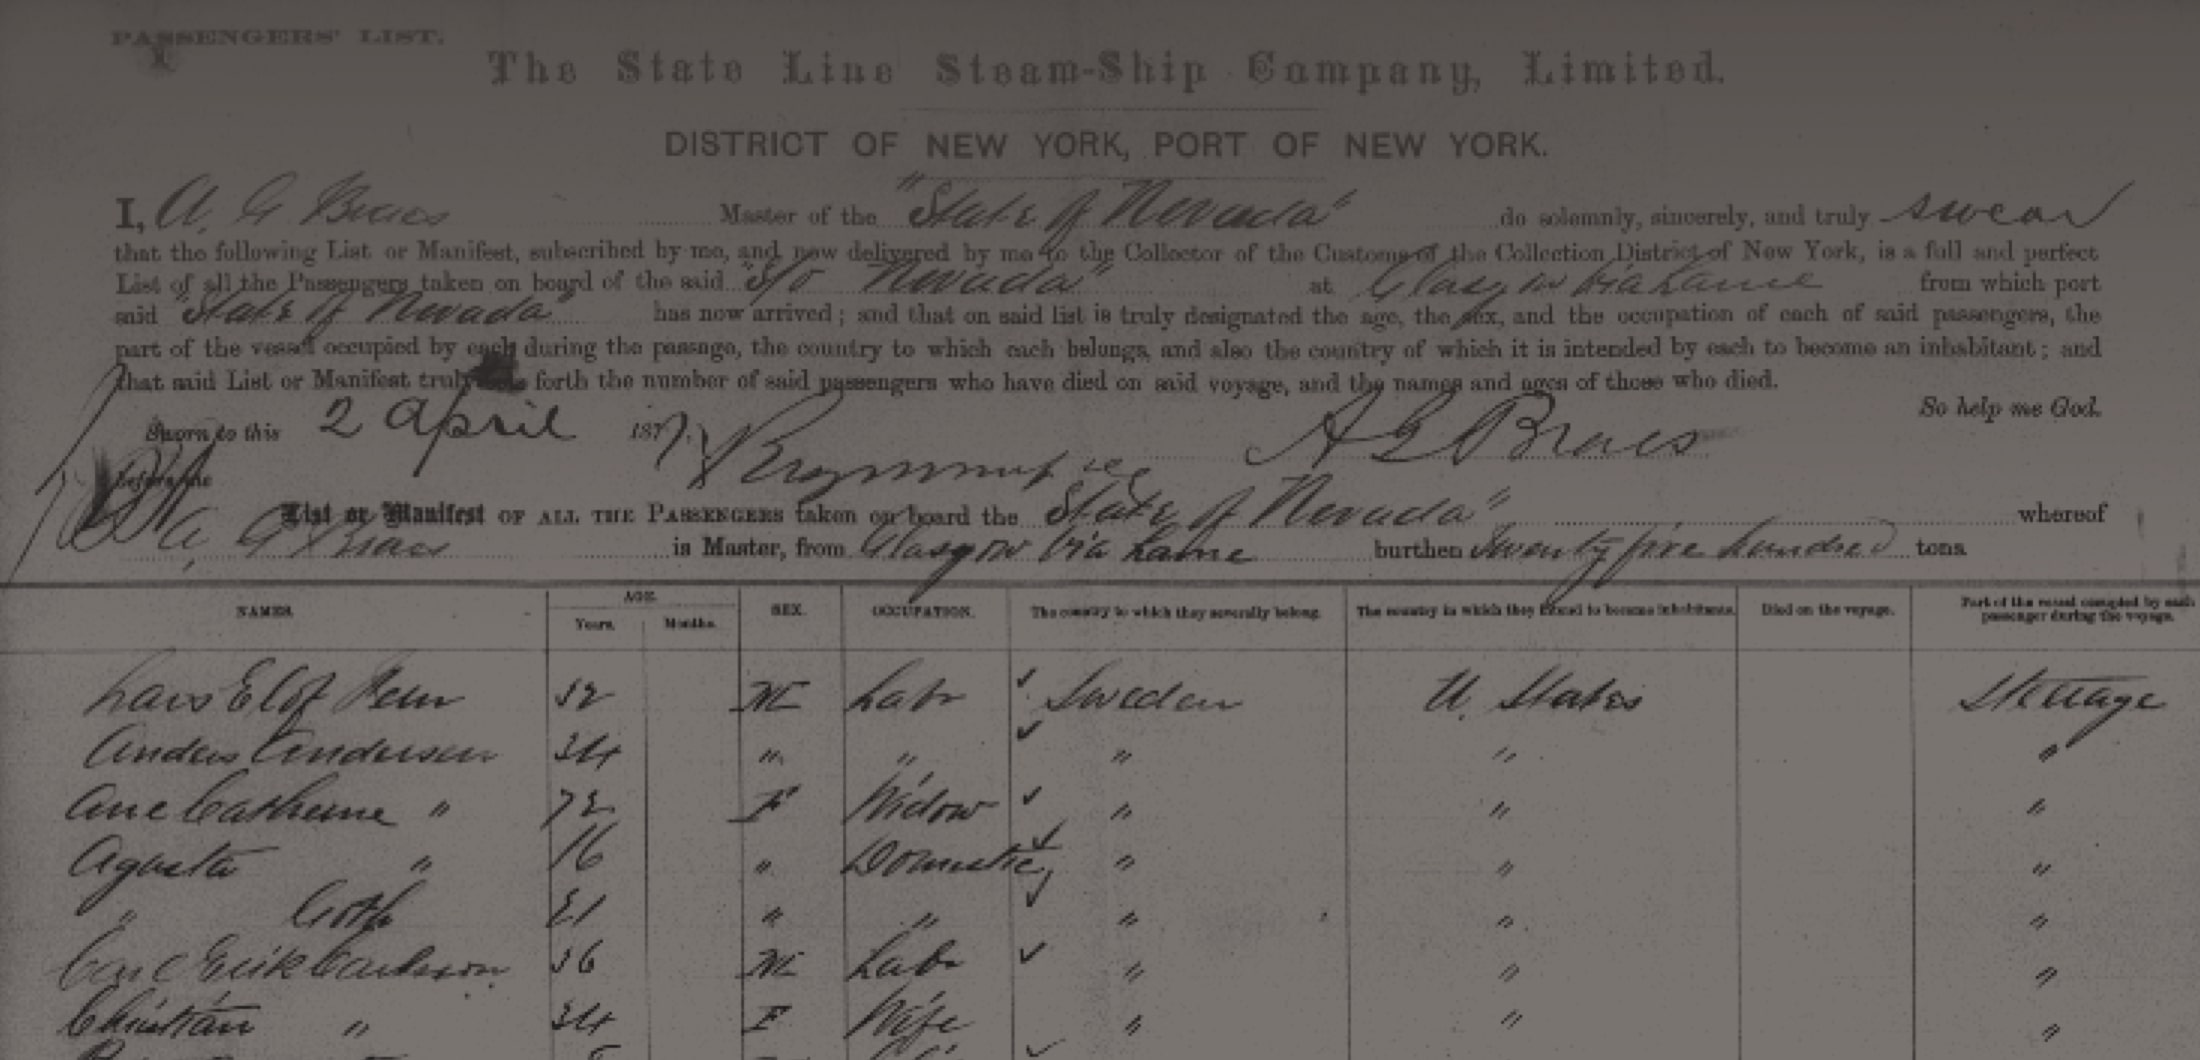 PASSENGERS' LIST.
The State Line Steam-Ship Company, Limited.
DISTRICT OF NEW YORK, PORT OF NEW YORK.
I, A. G Braes Master of the "State of Nevada" do solemnly, sincerely, and truly swear
that the following List or Manifest, subscribed by me, and now delivered by me to the Collector of the Customs of the Collection District of New York, is a full and perfect
List of all the Passengers taken on board of the said "S/o Nevada" at Glasgow via Larne from which port
said "State of Nevada" has now arrived; and that on said list is truly designated the age, the sex, and the occupation of each of said passengers, the
part of the vessel occupied by each during the passage, the country to which each belongs, and also the country of which it is intended by each to become an inhabitant; and
that said List or Manifest truly forth the number of said passengers who have died on said voyage, and the names and ages of those who died.
So help me God.
Sworn to this 2 April 1877. A G Braes
before me
List or Manifest OF ALL THE PASSENGERS taken on board the State of Nevada" whereof
A G Braes is Master, from Glasgow via Larne burthen Twenty five hundred tons
NAMES. AGE. Years. Months. SEX. OCCUPATION. The country to which they severally belong. The country in which they intend to become inhabitants. Died on the voyage. Part of the vessel occupied by each passenger during the voyage.
Lars Elof 32 M Labr Sweden U. States Steerage
Anders Andersen 34 " " " " "
Ane Catherine " 72 F Widow " " "
Agusta " 16 " Domestic " " "
" Goth 21 " " " " "
Carl Erik Carlsson 36 M Labr " " "
Christian " 34 F Wife " " "